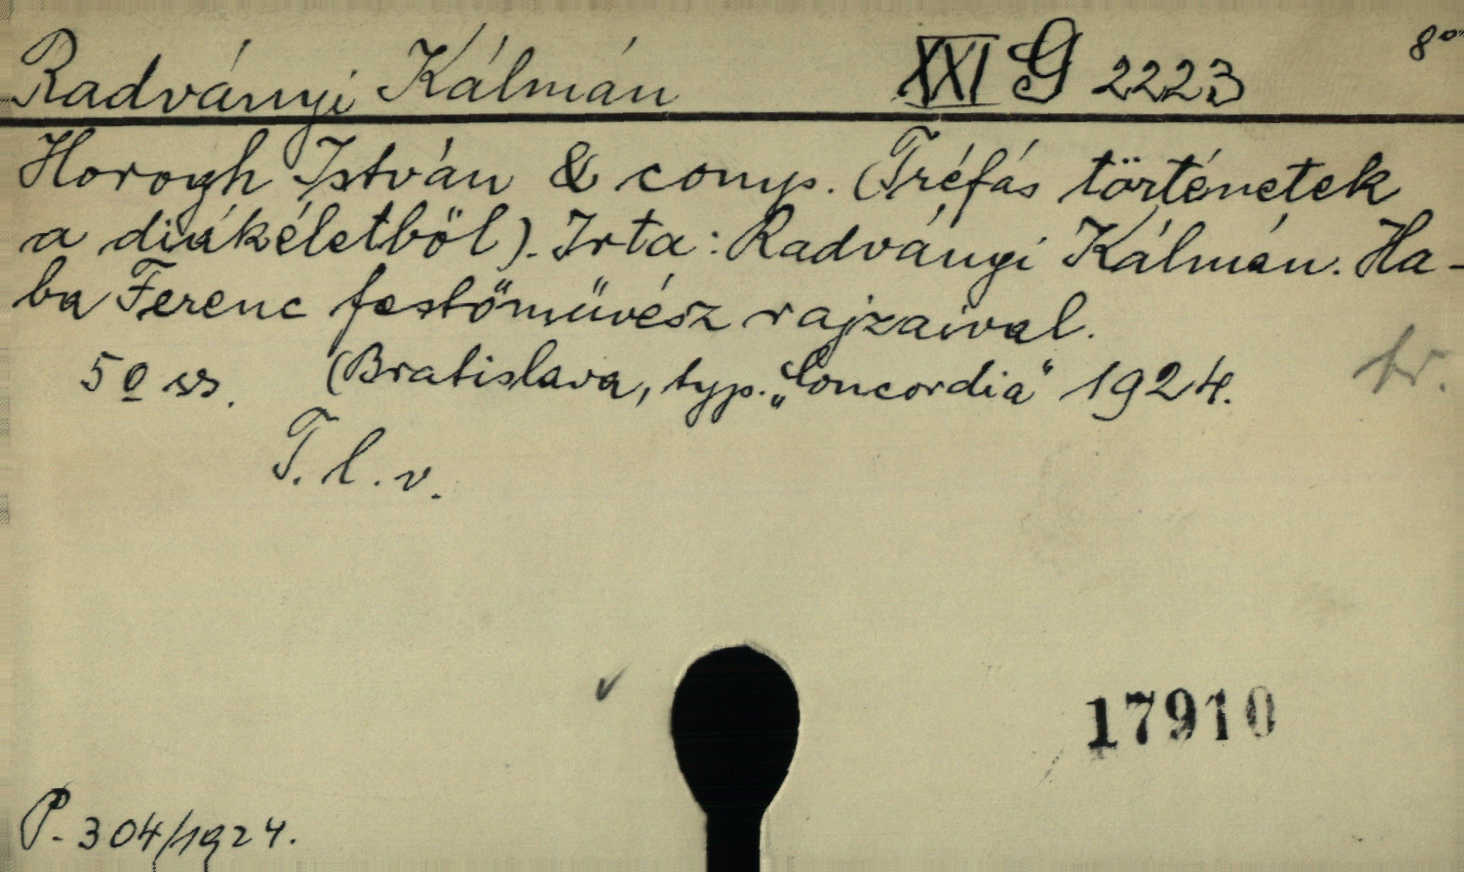 Radványi Kálmán XXI G 2223 8°
Horogh István & comp. (Tréfás történetek
a diákéletből). Irta: Radványi Kálmán. Ha-
ba Ferenc festőművész rajzaival.
50 ss. (Bratislava, typ. „Concordia" 1924.
T. l. v.
17910
P. 304/1924.